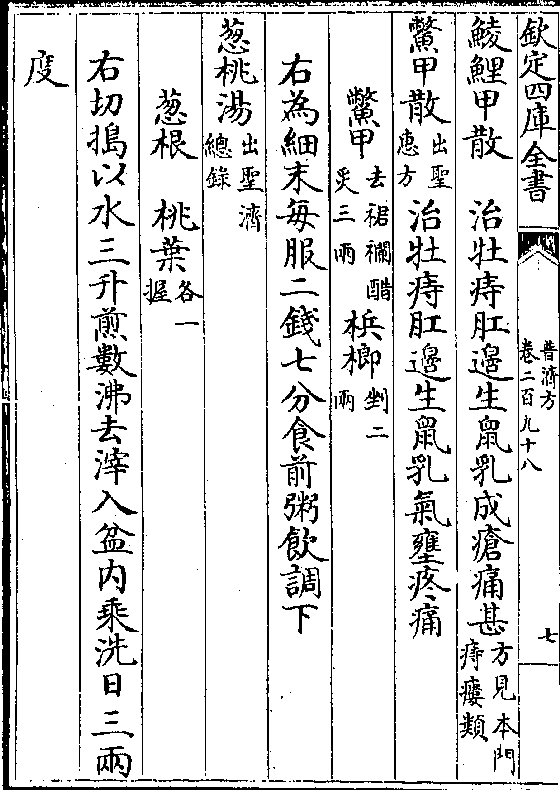 欽定四庫全書
普濟方
卷二百九十八
七
鯪鯉甲散 治牡痔肛邊生鼠乳成瘡痛甚方見本門
痔瘻類
鱉甲散出聖
惠方 治牡痔肛邊生鼠乳氣壅疼痛
鱉甲去裙襴醋
炙三兩 梹榔剉二
兩
右為細末每服二錢七分食前粥飲調下
葱桃湯出聖濟
總錄
葱根 桃葉各一
握
右切搗以水三升煎數沸去滓入盆内乘洗日三兩
度